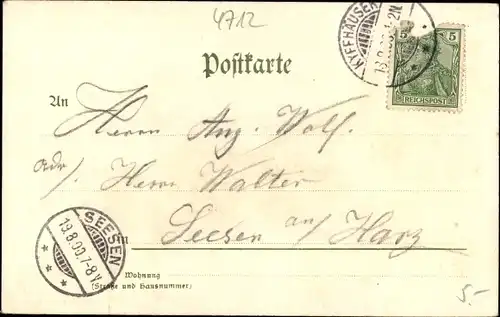 4712
KYFFHÄUSER
18.8.00. 1-2N.
5 5
REICHSPOST
Postkarte
An
Herrn Aug. Wolf.
Adr/. Herrn Walter
in Seesen a/ Harz
SEESEN
19.8.00.7-8V.
Wohnung
(Straße und Hausnummer)
5.-